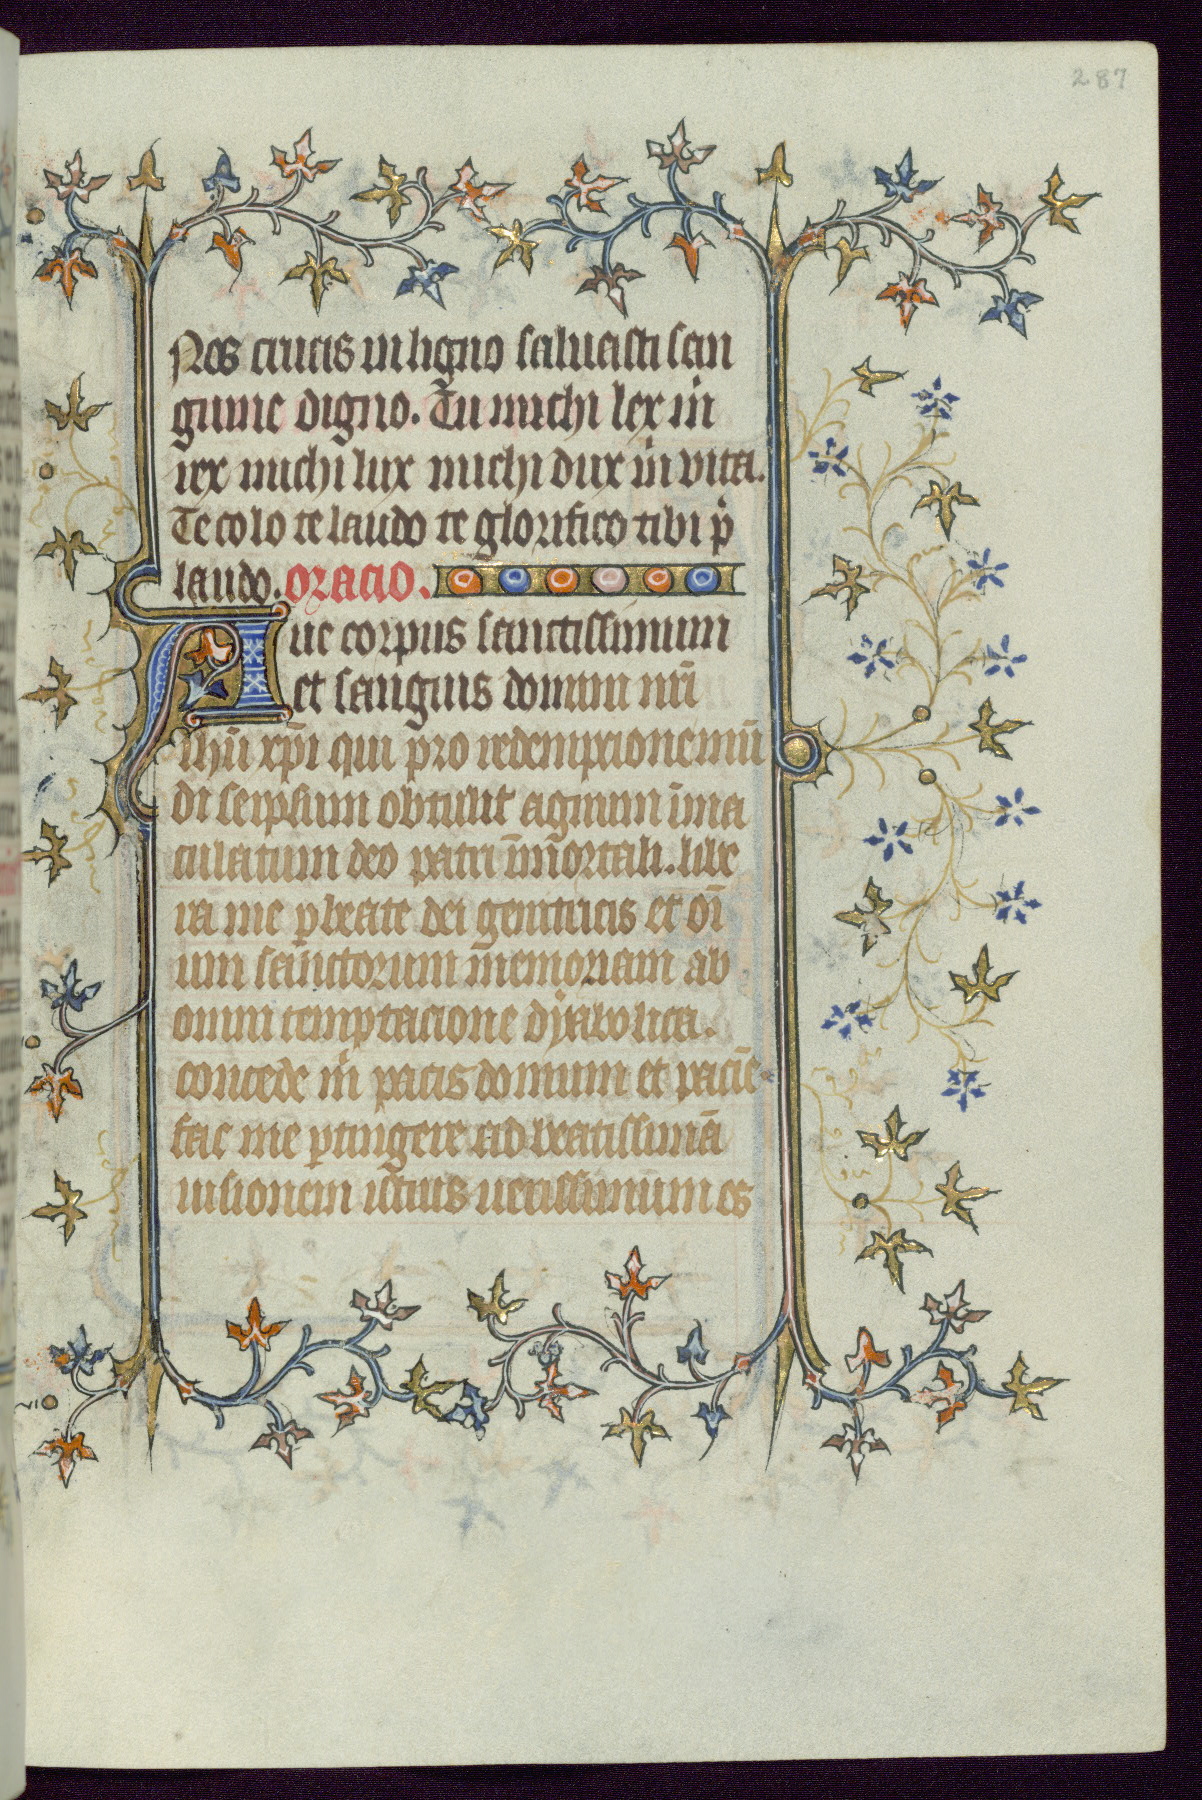 287
Nos crucis in ligno saluasti san
guine digno. Tu michi lex in
rex michi lux michi dux in vita.
Te colo te laudo te glorifico tibi p̄
laudo. oracio.
Aue corpus sanctissimum
et sanguis domini nr̄i
ihū xp̄i qui pro redempcione mū
di seipsum obtulit agnum īma
culatum deo patri īmortali. libe
ra me p beate dei genitricis et oī
um sanctorum memoriam ab
omni temptacione dyabolica.
concede m̄ pacis domum et pacīe
fac me ptingere ad beatissimā
uisionem istius uerissimum es